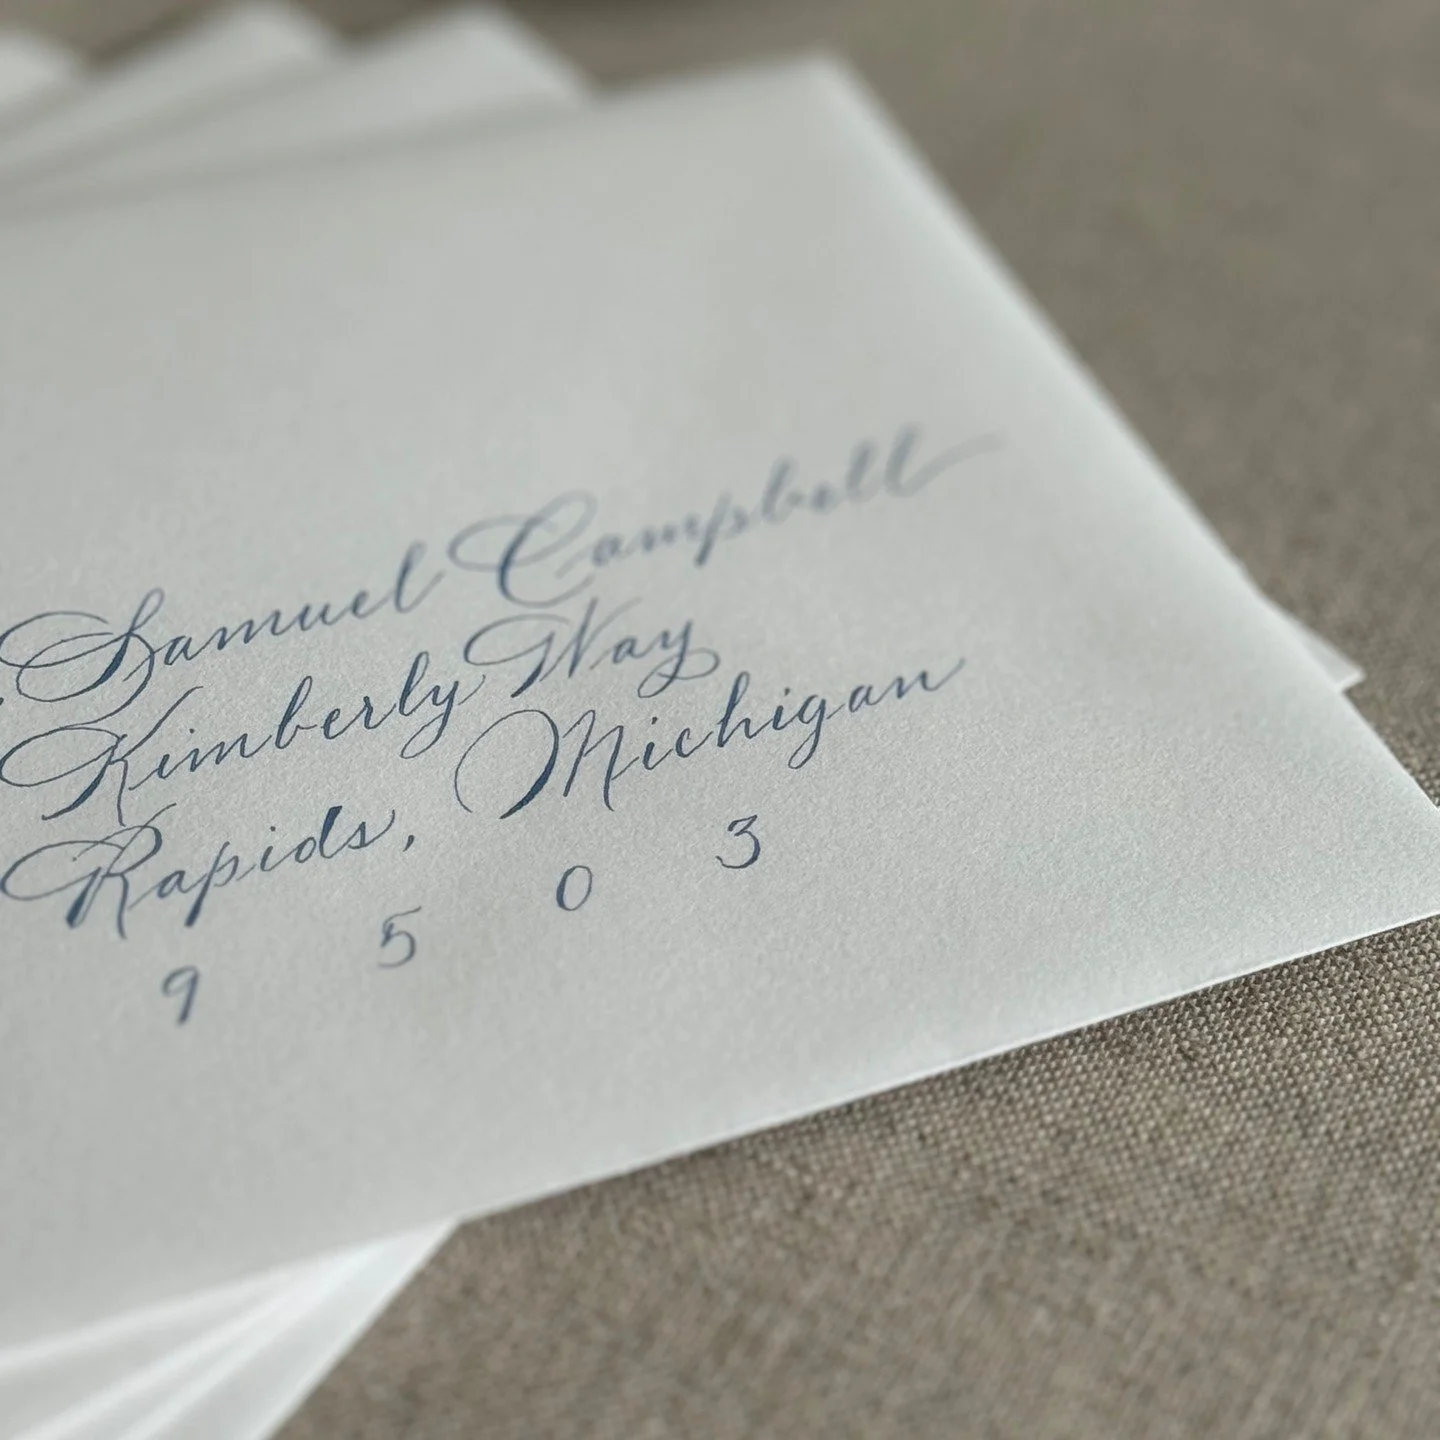 Samuel Campbell
Kimberly Way
Rapids, Michigan
9 5 0 3